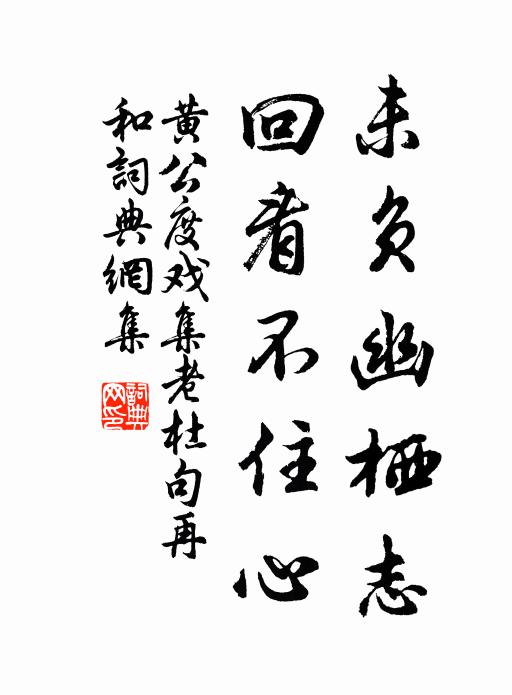 未负幽栖志
回看不住心
黄公度戏集老杜句再
和詞典網集
詞典
网印